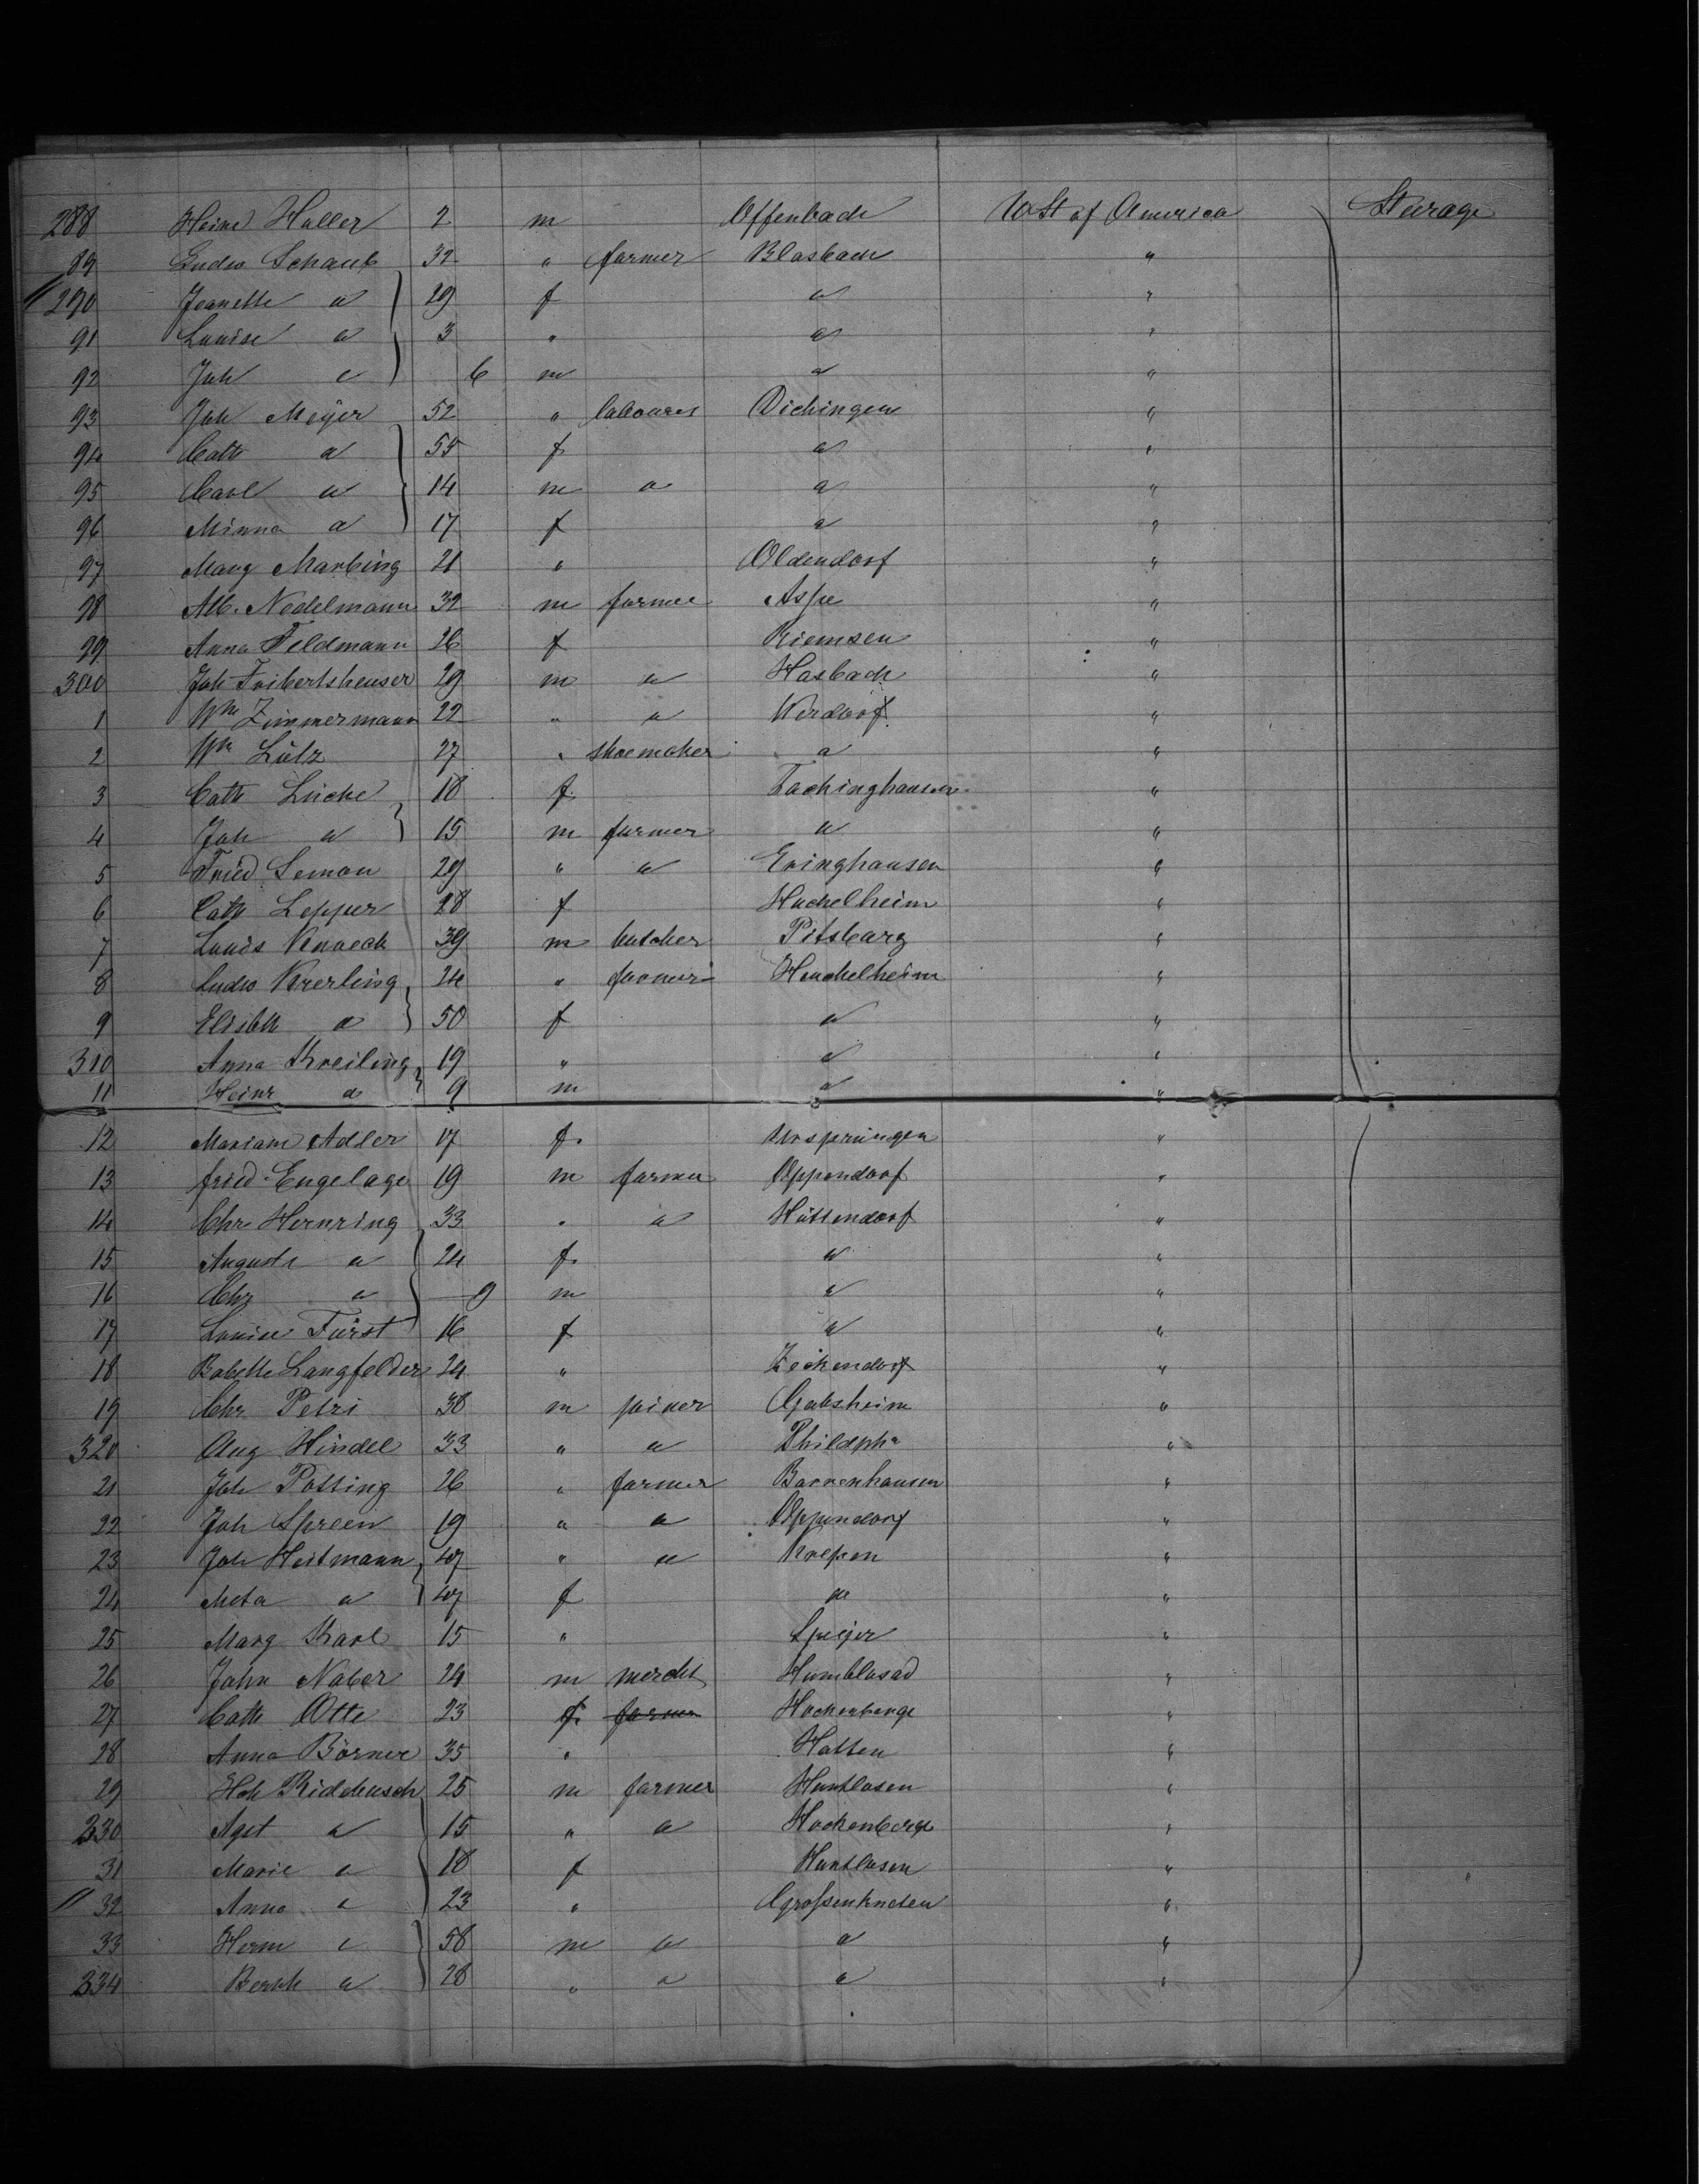 288 Heinr Haller 2 m Offenbach U St of America Steerage
89 Ludw Schaub 32 " farmer Blasbach "
290 Jeanette " 29 f " "
91 Louise " 3 " " "
92 Joh " 6 m " "
93 Joh Meÿer 52 " labourer Dichingen "
94 Cath " 55 f " "
95 Carl " 14 m " " "
96 Minna " 17 f " "
97 Marg Marbing 21 " Oldendorf "
98 Alb. Nedelmann 32 m farmer Aspe "
99 Anna Feldmann 26 f Riemsen "
300 Joh Fribertsheuser 29 m " Hasbach "
1 Wm Zimmermann 22 " " Werdorf "
2 Wm Lütz 27 " shoemaker " "
3 Cath Lücke 18 f Tachinghausen "
4 Joh " 15 m farmer " "
5 Fried Lemon 29 " " Eringhausen "
6 Cath Lepper 28 f Huchelheim "
7 Louis 39 m butcher Pitsburg "
8 Ludw Krerling 24 " farmer Heuchelheim "
9 Elisbth " 50 f " "
310 Anna Kreiling 19 " " "
11 Heinr " 9 m " "
12 Mariam Adler 17 f. Urspringen "
13 fried. Engelage 19 m farmer Oppendorf "
14 Chr Hernring 33 " " Hüttendorf "
15 Auguste " 24 f. " "
16 Chr " 9 m " "
17 Louise Fürst 16 f " "
18 Babette Langfelder 24 " Zeckendorf "
19 Chr Petri 38 m joiner Gabsheim "
320 Aug Hindel 33 " " Phildpha "
21 Joh Potting 26 " farmer Barrenhausen "
22 Joh Spreen 19 " " Oppendorf "
23 Joh Heitmann 47 " " "
24 Meta " 47 f " "
25 Marg Karl 15 " Speijer "
26 John Naber 24 m mercht "
27 Cath Otte 23 f. farmer Hockenberge "
28 Anna Börner 35 " Hatten "
29 Hch Riddeusch 25 m farmer Huntlosen "
330 Agst " 15 " " Hockenberge "
31 Marie " 18 f Huntlosen "
32 Anna " 23 " Grossenkneten "
33 Herm " 58 m " " "
334 Bernh " 28 " " " "